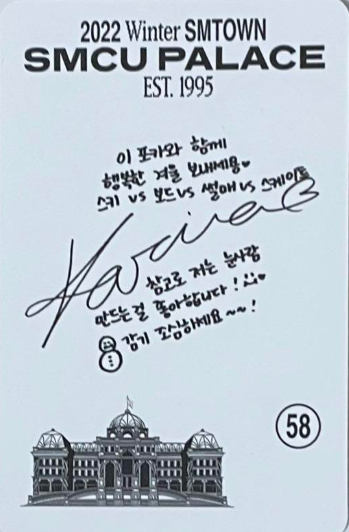 2022 Winter SMTOWN
SMCU PALACE
EST. 1995
이 포카와 함께
행복한 겨울 보내세용♥
스키 vs 보드 vs 썰매 vs 스케이트
Karina
참고로 저는 눈사람
만드는걸 좋아합니다!
감기 조심하세요~~!
58